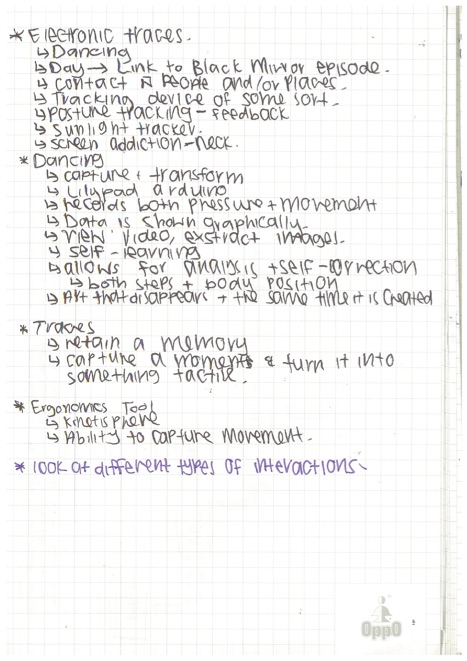 * Electronic traces.
↳ Dancing
↳ Day → Link to Black Mirror episode.
↳ contact People and/or places.
↳ Tracking device of some sort.
↳ posture tracking - feedback
↳ sunlight tracker.
↳ screen addiction - neck.
* Dancing
↳ capture + transform
↳ Lilypad arduino
↳ records both pressure + movement
↳ Data is shown graphically
↳ view video, exstract images.
↳ self-learning
↳ allows for analysis + self-correction
↳ both steps + body position
↳ Art that disappears + the same time it is created
* Traces
↳ retain a memory
↳ capture a moment & turn it into
something tactile.
* Ergonomics Tool
↳ Kinetisphere
↳ Ability to capture movement.
* look at different types of interactions.
OppO